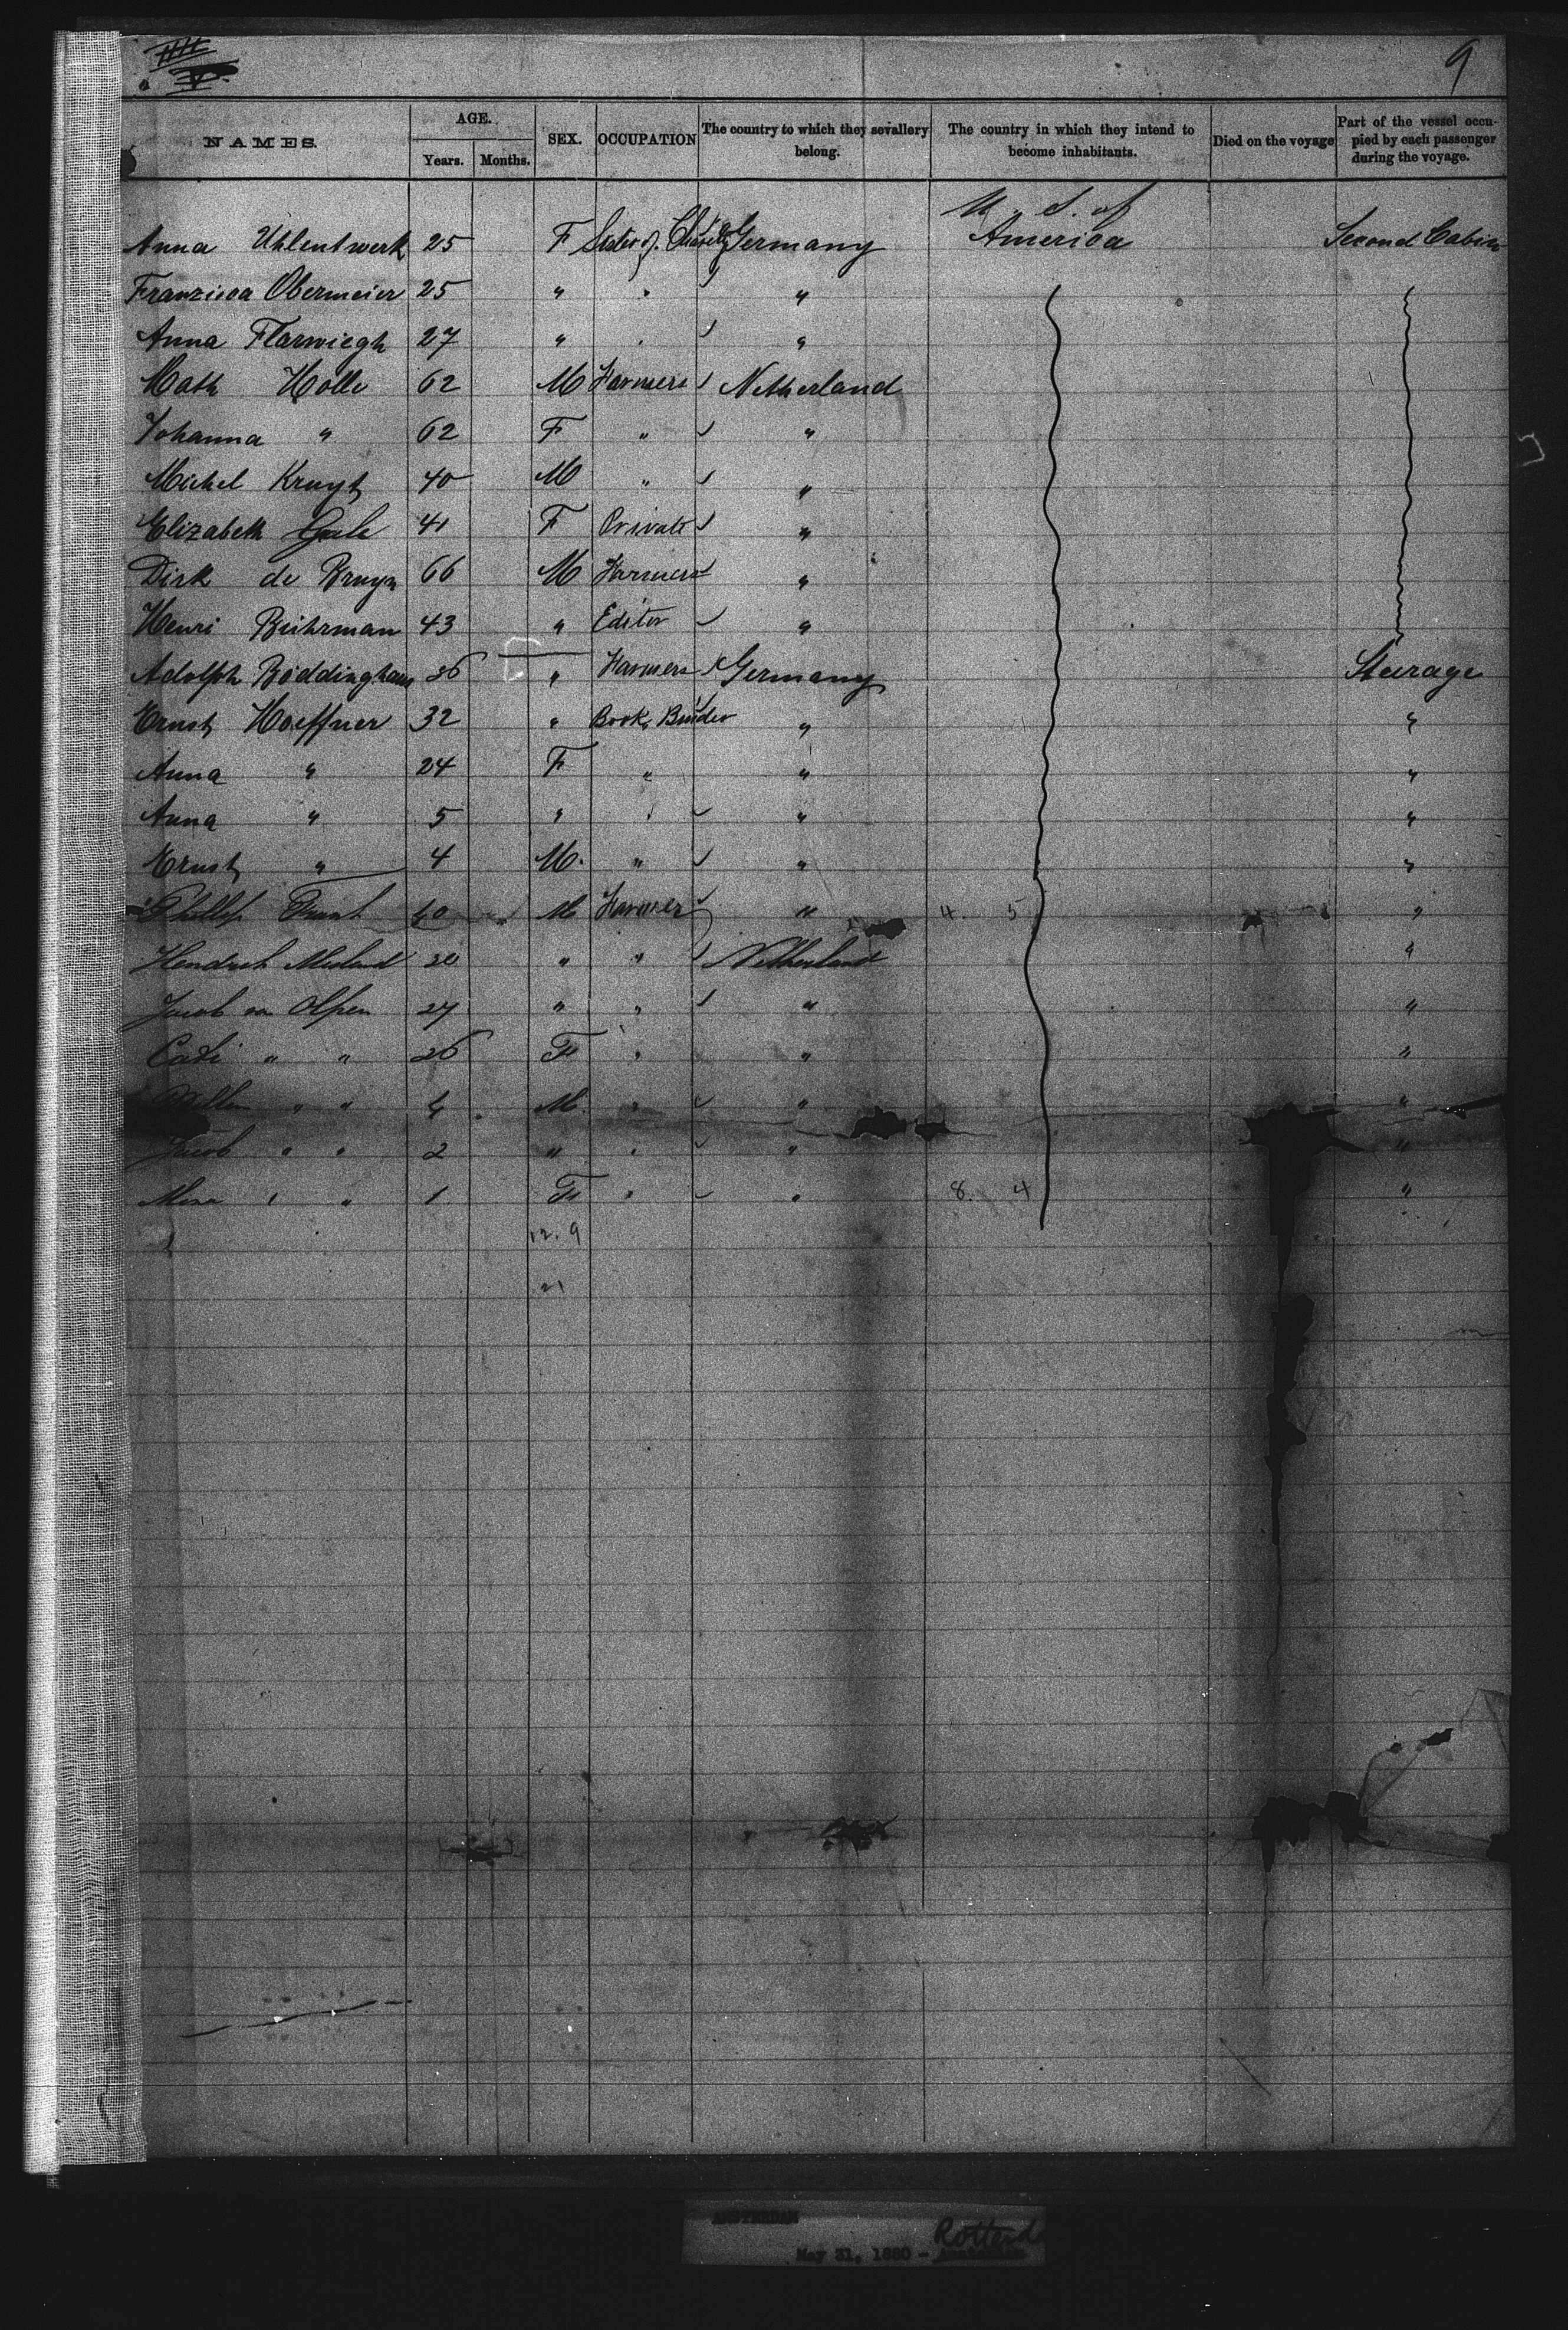 9
NAMES. AGE. Years. Months. SEX. OCCUPATION The country to which they sevallery belong. The country in which they intend to become inhabitants. Died on the voyage Part of the vessel occupied by each passenger during the voyage.
U. S. of
Anna Uhlentwerk 25 F Sister of Charity Germany America Second Cabin
Franzisca Obermeier 25 " " "
Anna Flarwiegh 27 " " "
Math Holle 62 M Farmers Netherland
Johanna " 62 F " "
Michel Kruyt 40 M " "
Elizabeth 41 F Private "
Dirk de Bruyn 66 M Farmers "
Henri Buhrman 43 " Editor "
Adolph Böddinghaus 36 " Farmers Germany Steerage
Ernst Hoeffner 32 " Book Binder " "
Anna " 24 F " " "
Anna " 5 " " " "
Ernst " 4 M. " " "
Phillip 40 M Farmer " 4. 5 "
Hendrik 20 " " Netherland "
Jacob van Alpen 27 " " " "
Cati " " 26 F " " "
" " 4 M. " " "
Jacob " " 2 " " " "
" " 1 F " " 8. 4 "
12. 9
21
AMSTERDAM
Rotterd
May 31, 1880 -